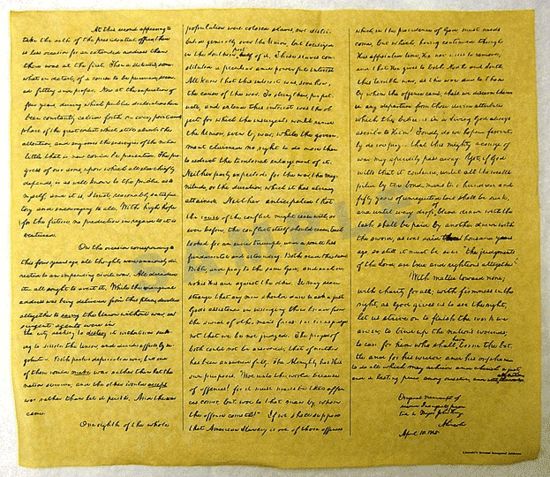 At this second appearing to
take the oath of the presidential office, there
is less occasion for an extended address than
there was at the first. Then a statement, some-
what in detail, of a course to be pursued, seem-
ed fitting and proper. Now, at the expiration of
four years, during which public declarations have
been constantly called forth on every point and
phase of the great contest which still absorbs the
attention, and engrosses the energies of the nation,
little that is new could be presented. The pro-
gress of our arms, upon which all else chiefly
depends, is as well known to the public as to
myself; and it is, I trust, reasonably satisfac-
tory and encouraging to all. With high hope
for the future, no prediction in regard to it is
ventured.
On the occasion corresponding to
this four years ago, all thoughts were anxiously di-
rected to an impending civil war. All dreaded
it — all sought to avert it. While the inaugeral
address was being delivered from this place, devoted
altogether to saving the Union without war, in-
surgent agents were in
the city seeking to destroy it without war — seek-
ing to dissolve the Union, and divide effects, by ne-
gotiation. Both parties deprecated war; but one
of them would make war rather than let the
nation survive; and the other would accept
war rather than let it perish. And the war
came.
One eighth of the whole
population were colored slaves, not distri-
buted generally over the Union, but localized
in the Southern part of it. These slaves con-
stituted a peculiar and powerful interest.
All knew that this interest was, somehow,
the cause of the war. To strengthen, perpet-
uate, and extend this interest was the ob-
ject for which the insurgents would rend
the Union, even by war; while the govern-
ment claimed no right to do more than
to restrict the territorial enlargement of it.
Neither party expected for the war, the mag-
nitude, or the duration, which it has already
attained. Neither anticipated that
the cause of the conflict might cease with, or
even before, the conflict itself should cease. Each
looked for an easier triumph, and a result less
fundamental and astounding. Both read the same
Bible, and pray to the same God; and each in-
vokes His aid against the other. It may seem
strange that any men should dare to ask a just
God's assistance in wringing their bread from
the sweat of other men's faces; but let us judge
not that we be not judged. The prayers of
both could not be answered; that of neither
has been answered fully. The Almighty has His
own purposes. "Woe unto the world because
of offences! for it must needs be that offen-
ces come; but woe to that man by whom
the offence cometh!" If we shall suppose
that American Slavery is one of those offences
which, in the providence of God, must needs
come, but which, having continued through
His appointed time, He now wills to remove,
and that He gives to both North and South,
this terrible war, as the woe due to those
by whom the offence came, shall we discern there-
in any departure from those divine attributes
which the believers in a Living God always
ascribe to Him? Fondly do we hope — fervent-
ly do we pray — that this mighty scourge of
war may speedily pass away. Yet, if God
wills that it continue, until all the wealth
piled by the bond-man's two hundred and
fifty years of unrequited toil shall be sunk,
and until every drop of blood drawn with the
lash, shall be paid by another drawn with
the sword, as was said three thousand years
ago, so still it must be said "the judgments
of the Lord, are true and righteous altogether"
With malice toward none;
with charity for all; with firmness in the
right, as God gives us to see the right,
let us strive on to finish the work we
are in; to bind up the nation's wounds;
to care for him who shall have borne the bat-
tle, and for his widow, and his orphan —
to do all which may achieve and cherish a just,
and a lasting peace, among ourselves, and with all nations.
Original manuscript of
second Inaugural presen-
ted to Major John Hay
A. Lincoln
April 10, 1865
Lincoln's Second Inaugural Address